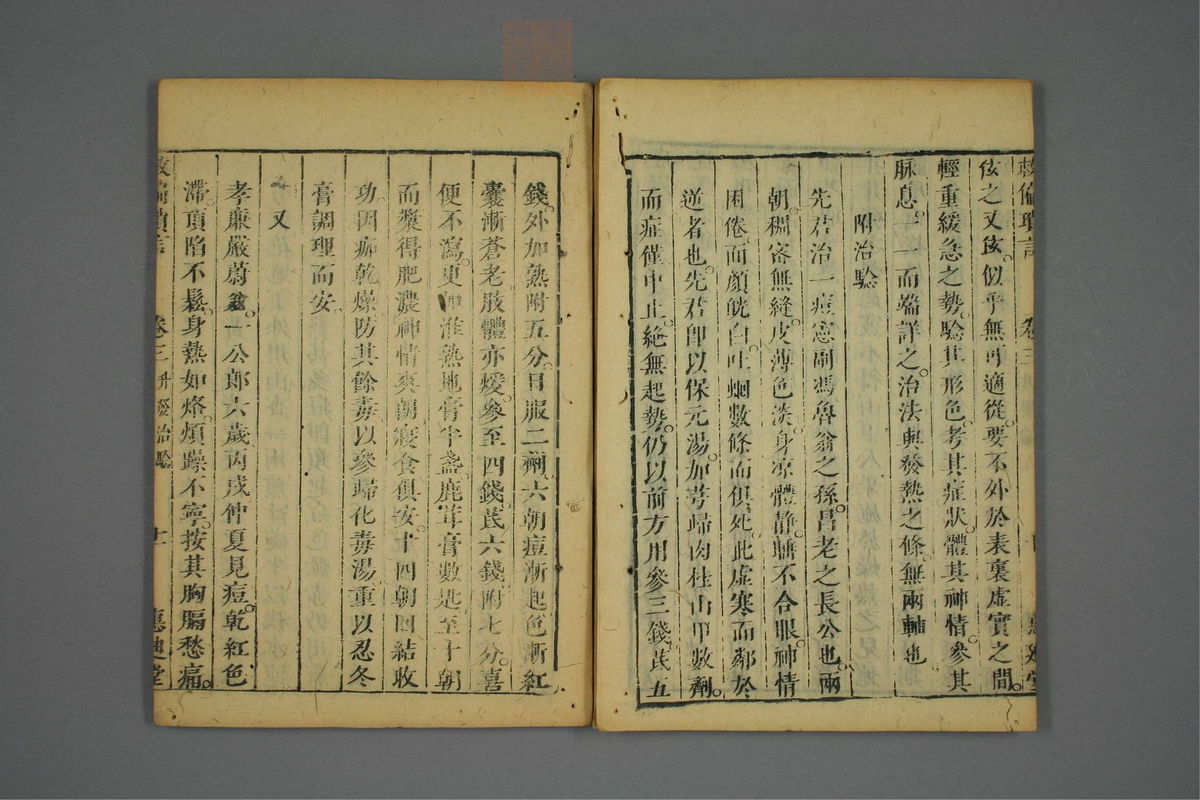 伭之又伭似乎無可適從要不外於表裏虛實之間
輕重緩急之勢驗其形色考其症狀體其神情參其
脉息一一而端詳之治法與發熱之條無兩軸也
附治驗
先君治一痘憲副馮魯翁之孫昌老之長公也兩
朝稠密無縫皮薄色淡身凉體静瞒不合眼神情
困倦而顔㿠白吐蛔數條而俱死此虛寒而鄰於
逆者也先君卽以保元湯加芎歸肉桂山甲數劑
而症僅中止絶無起勢仍以前方用參三錢芪五
錢外加熟附五分日服二劑六朝痘漸起色漸紅
囊漸蒼老肢體亦煖參至四錢芪六錢附七分喜
便不瀉更 淮熟地膏半盞鹿茸膏數匙至十朝
而漿得肥濃神情爽朗寢食俱安十四朝回結收
功因痂乾燥防其餘毒以參歸化毒湯重以忍冬
膏調理而安
又
孝廉嚴蔚翁一公郎六歲丙戌仲夏見痘乾紅色
滯頂陷不鬆身熱如烙煩躁不寧按其胸膈愁痛
卷三 升發治驗 十一 惠迪堂